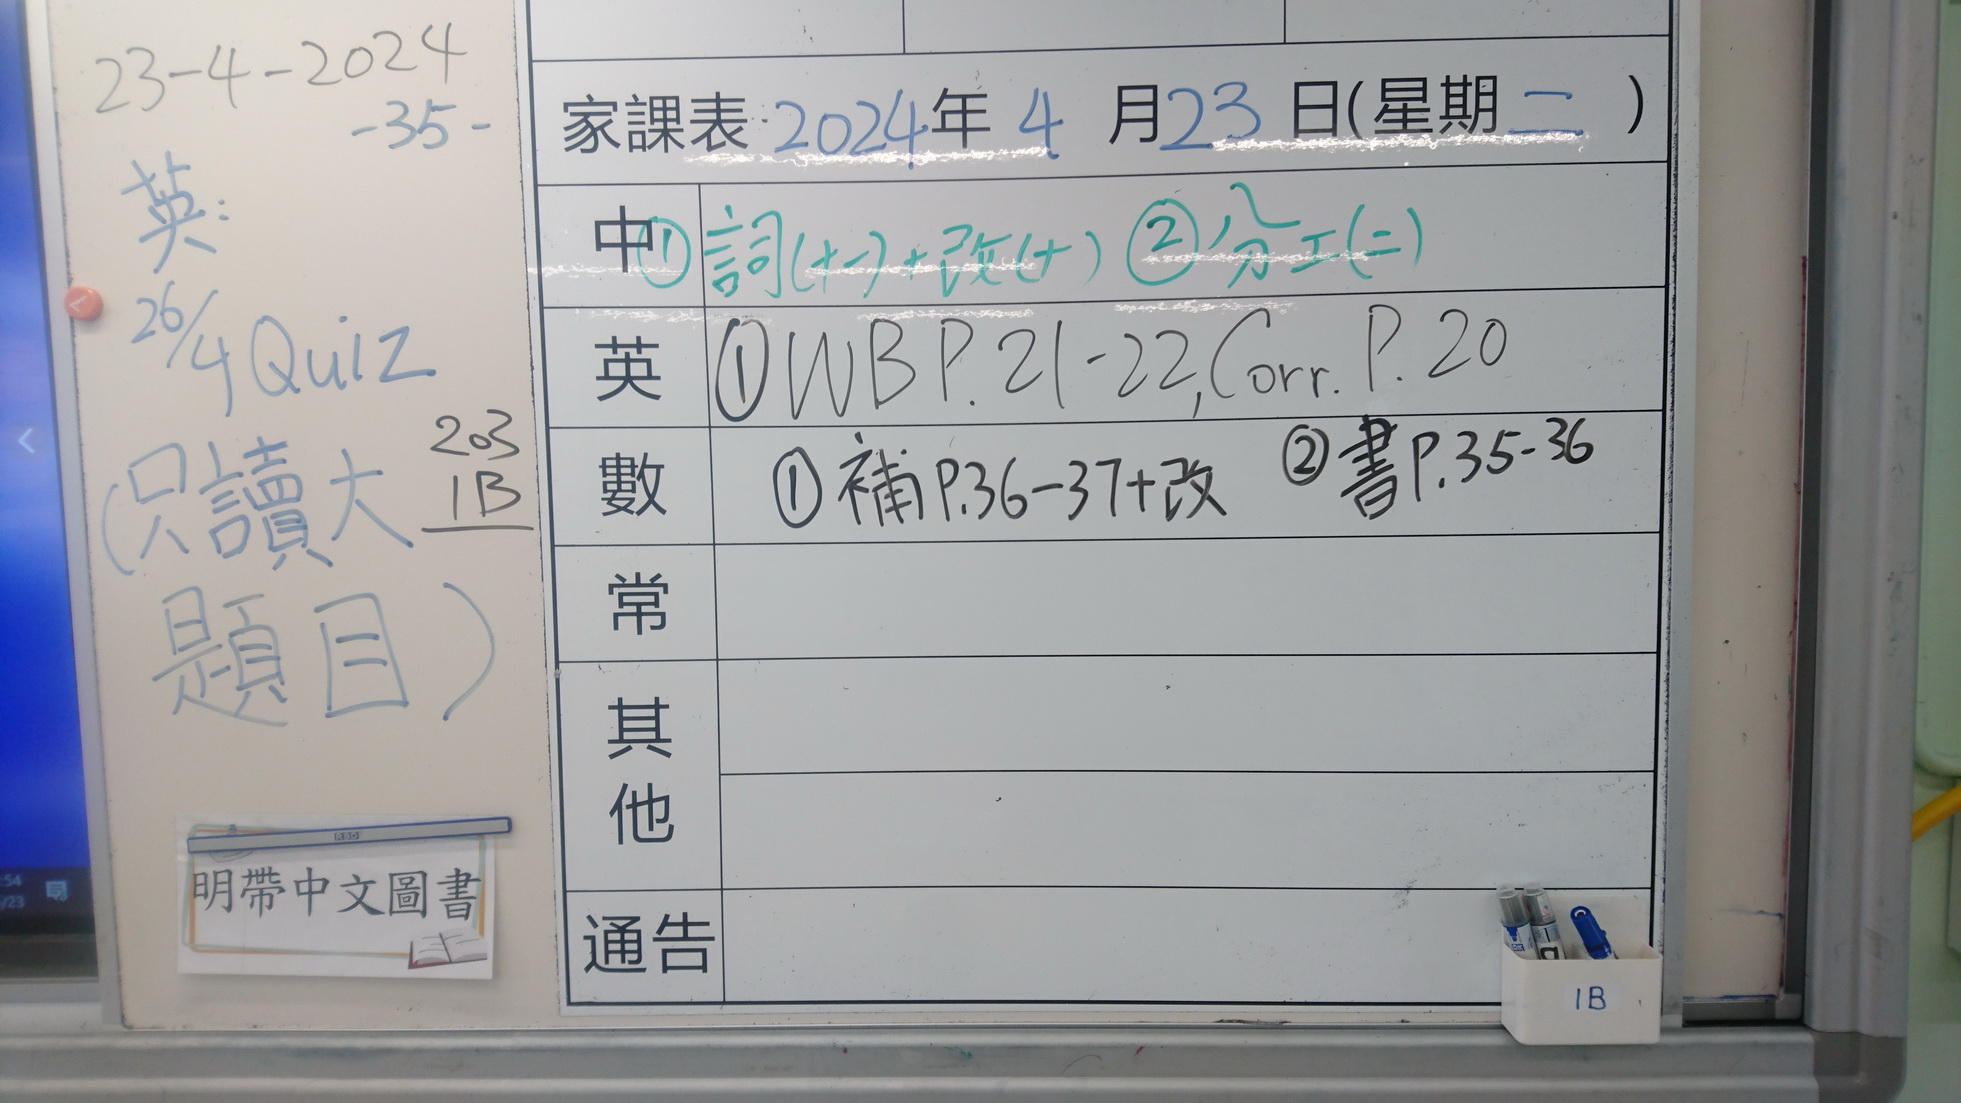 23-4-2024
-35-
英:
26/4 Quiz
(只讀大
題目)
203
1B
明帶中文圖書
家課表 2024年 4 月23 日(星期二 )
中 ①詞(十一)+改(十) ②分工(二)
英 ①WB P.21-22, Corr. P.20
數 ①補P.36-37+改 ②書P.35-36
常
其他
通告
1B